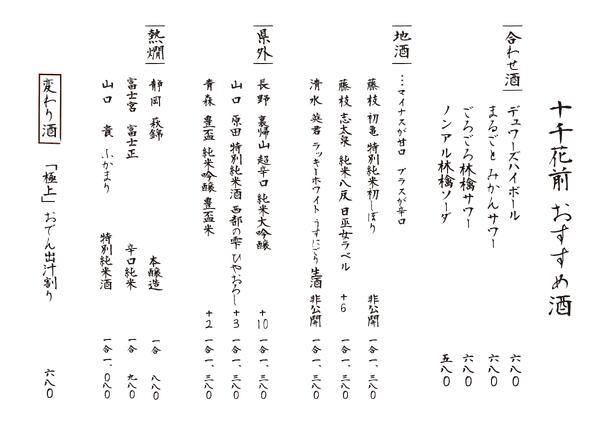 十千花前 おすすめ酒
合わせ酒
デュワーズハイボール 六八〇
まるごとみかんサワー 六八〇
ごろごろ林檎サワー 六八〇
ノンアル林檎ソーダ 五八〇
地酒
…マイナスが甘口 プラスが辛口
藤枝 初亀 特別純米初しぼり 非公開 一合一、三八〇
藤枝 志太泉 純米八反 日巫女ラベル +6 一合一、三八〇
清水 英君 ラッキーホワイト うすにごり 生酒 非公開 一合一、三八〇
県外
長野 裏帰山 超辛口 純米大吟醸 +10 一合一、三八〇
山口 原田 特別純米酒 西都の雫 ひやおろし +3 一合一、三八〇
青森 豊盃 純米吟醸 豊盃米 +2 一合一、三八〇
熱燗
静岡 萩錦 本醸造 一合 八八〇
富士宮 富士正 辛口純米 一合 九八〇
山口 貴 ふかまり 特別純米酒 一合一、〇八〇
変わり酒
「極上」おでん出汁割り 六八〇